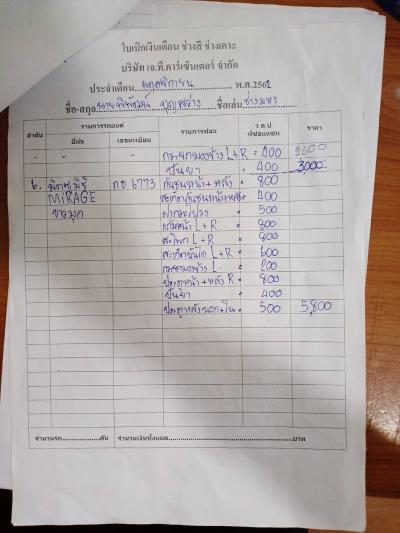 ใบเบิกเงินเดือน ช่างสี ช่างเคาะ
บริษัท เจ.พี.คาร์เซ็นเตอร์ จำกัด
ประจำเดือน พฤศจิกายน พ.ศ.2562
ชื่อ-สกุล นายพิพัฒน์ บุญสว่าง ชื่อเล่น ช่างมหา
ลำดับ รายการรถยนต์ รายการซ่อม ว ด ป ที่ซ่อมเสร็จ ราคา
ยี่ห้อ เลขทะเบียน
- - - กระจกมองข้าง L+R = 400 2600
ปั้นยา = 400 3,000
6. มิตซูมิชิ กอ 6773 กันชนหน้า+หลัง = 800
MIRAGE สเกิตกันชนหน้า+หลัง = 400
ขาวมุก ฝากระโปรง = 500
แก้มหน้า L+R = 800
สะโพก L+R = 800
สเกิตบันได L+R = 600
กระจกมองข้าง L = 200
ประตูหน้า+หลัง R = 800
ปั้นยา = 400
ประตูหลังนอก+ใน = 500 5,800
จำนวนรถ คัน จำนวนเงินทั้งหมด บาท